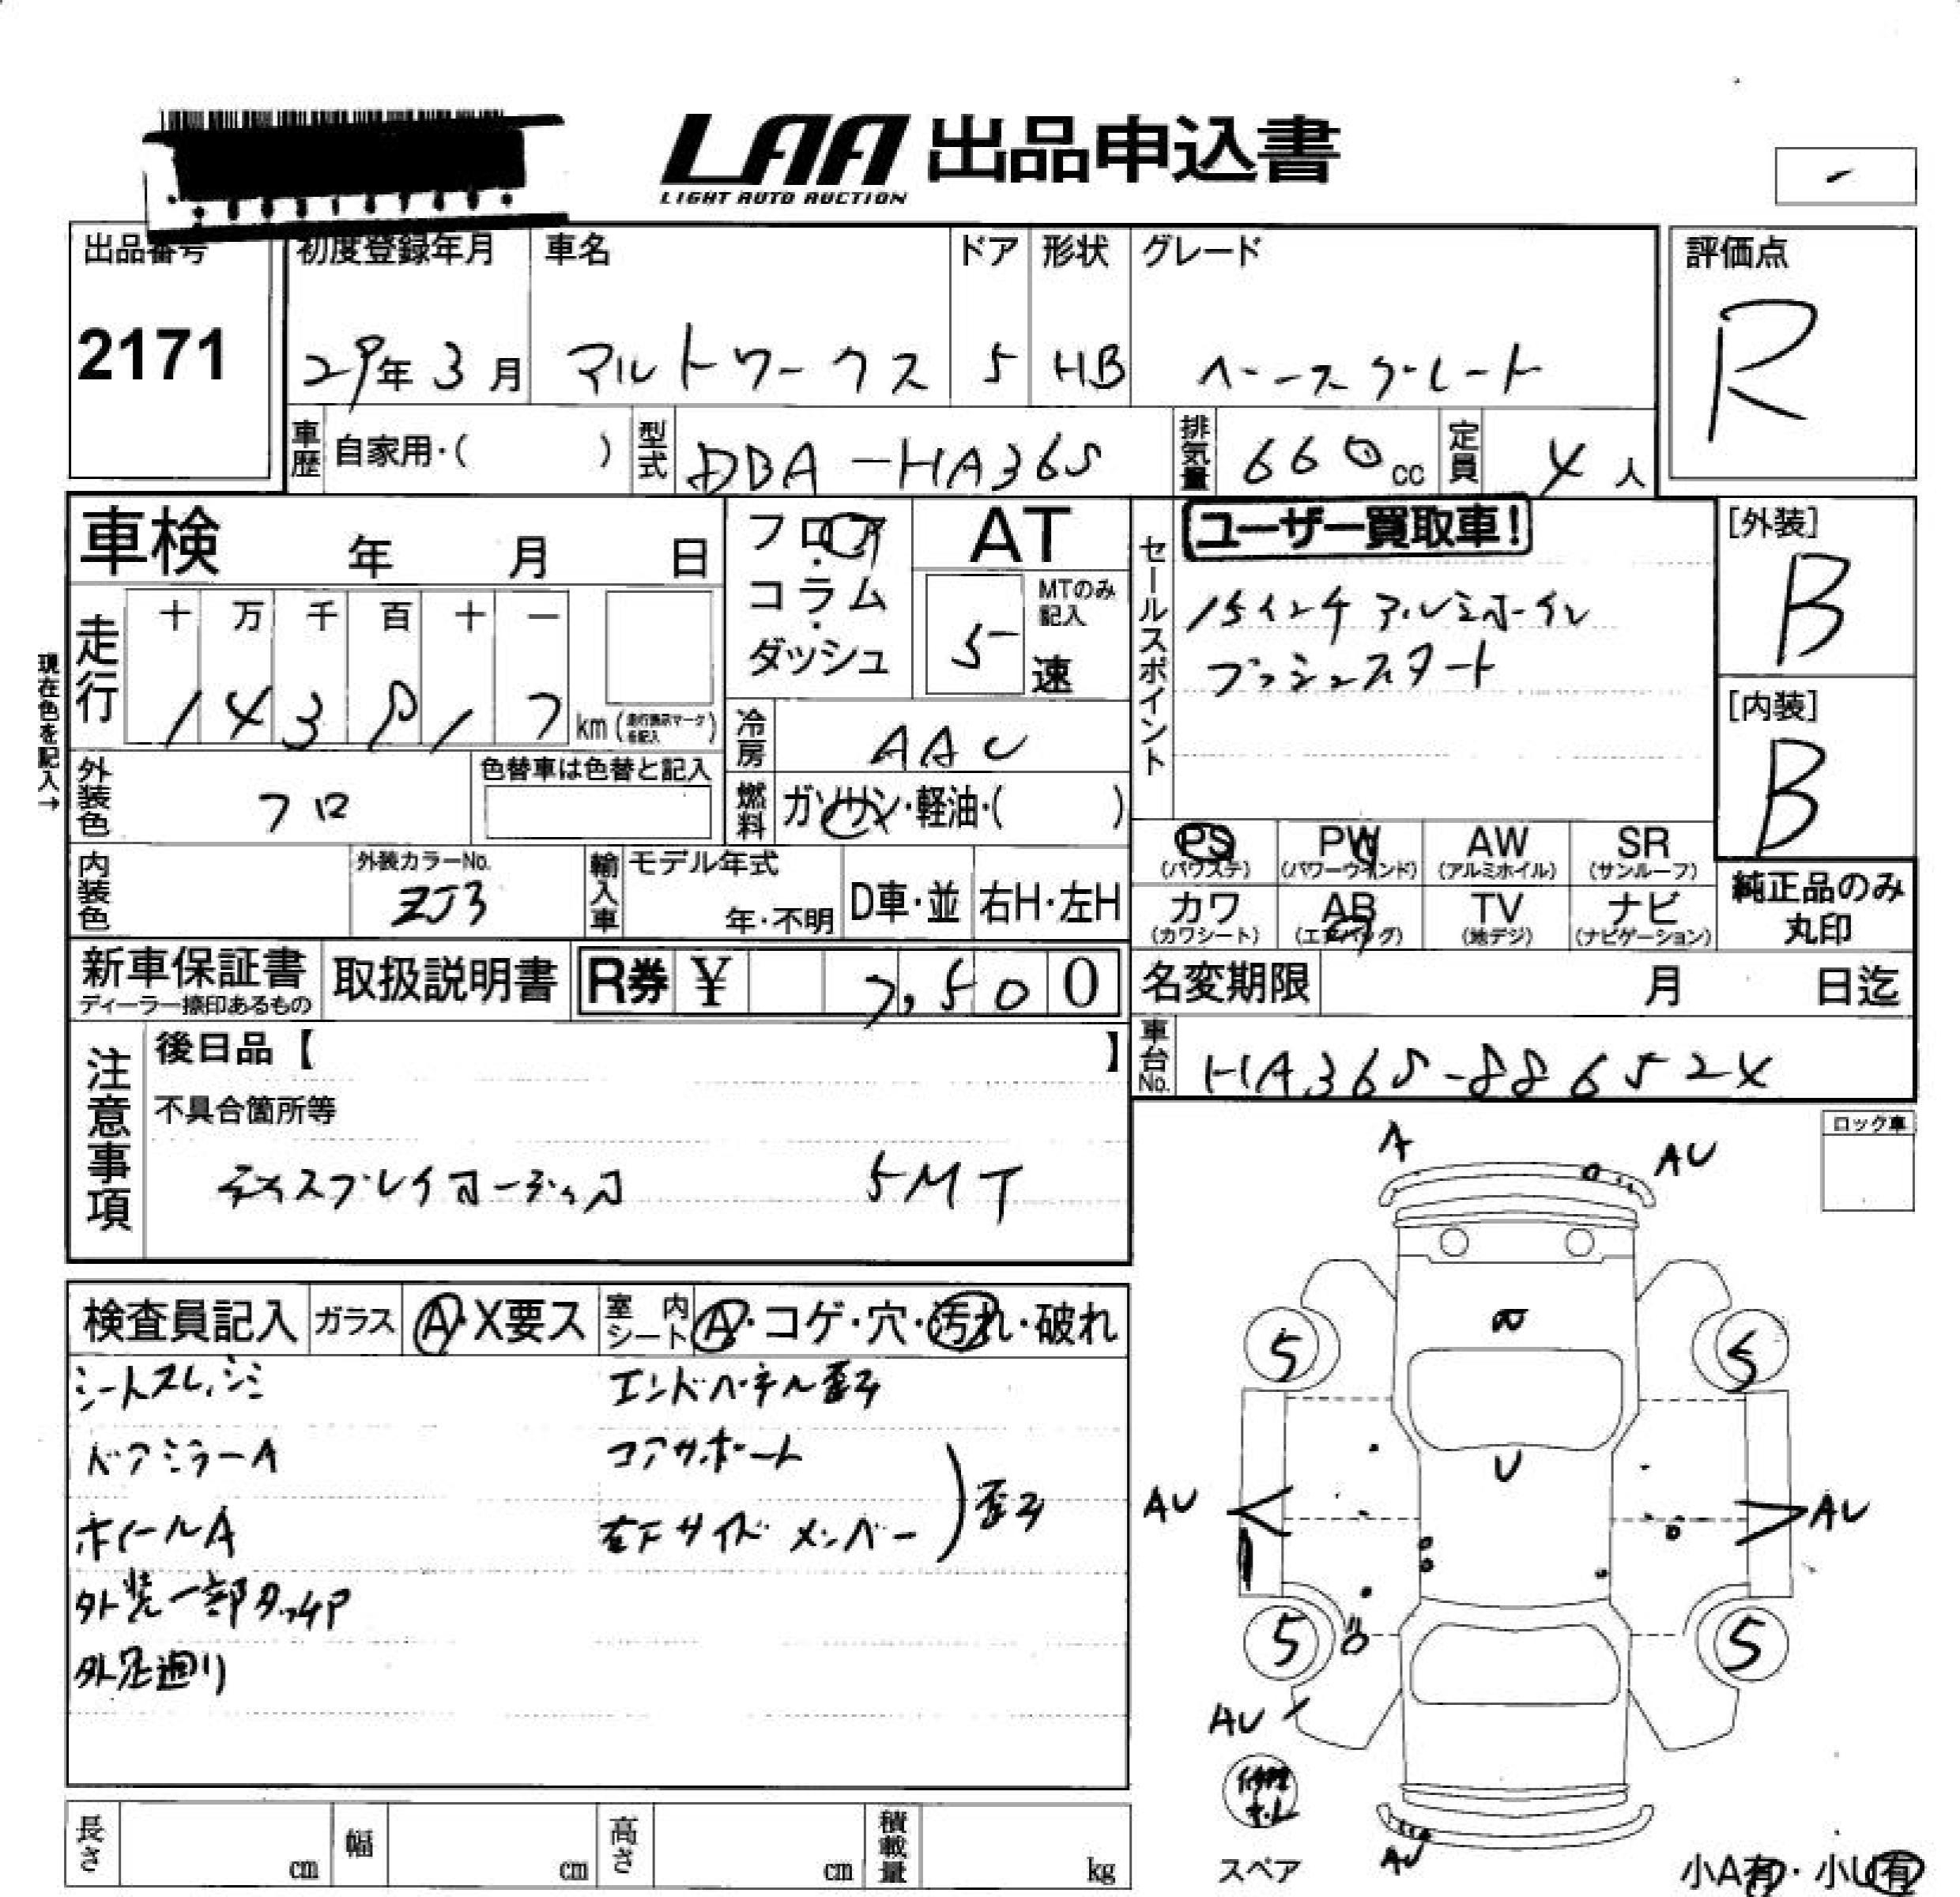 LAA 出品申込書
LIGHT AUTO AUCTION
出品番号
2171
初度登録年月
29年3月
車名
アルトワークス
ドア
5
形状
HB
グレード
ベースグレート
評価点
R
車歴 自家用・( )
型式 DBA-HA36S
排気量 660cc
定員 4人
車検 年 月 日
フロア・コラム・ダッシュ
AT
MTのみ記入
5速
セールスポイント
ユーザー買取車!
15インチアルミホイル
プッシュスタート
[外装]
B
[内装]
B
現在色を記入→
走行
十 万 千 百 十 一
km
冷房 AAC
外装色 クロ
色替車は色替と記入
燃料 ガソリン・軽油・( )
内装色
外装カラーNo.
ZJ3
輸入車
モデル年式
年・不明
D車・並
右H・左H
PS (パワステ)
PW (パワーウインド)
AW (アルミホイル)
SR (サンルーフ)
カワ (カワシート)
AB (エアバッグ)
TV (地デジ)
ナビ (ナビゲーション)
純正品のみ
丸印
新車保証書
ディーラー捺印あるもの
取扱説明書
R券 ¥ 7,500
名変期限 月 日迄
車台No. HA36S-886524
注意事項
後日品【 】
不具合箇所等
ディスプレイオーディオ 5MT
ロック車
検査員記入
ガラス
A・X要ス
室内シート
A・コゲ・穴・汚れ・破れ
シートスレ、シミ
エンドパネル歪み
ドアミラーA
コアサポート
ホイールA
右下サイドメンバー
歪み
外装一部タッチP
外足廻り
A
AU
5
5
U
AU
AU
5
5
AU
修理キット
スペア
AU
小A有・小U有
長さ cm
幅 cm
高さ cm
積載量 kg